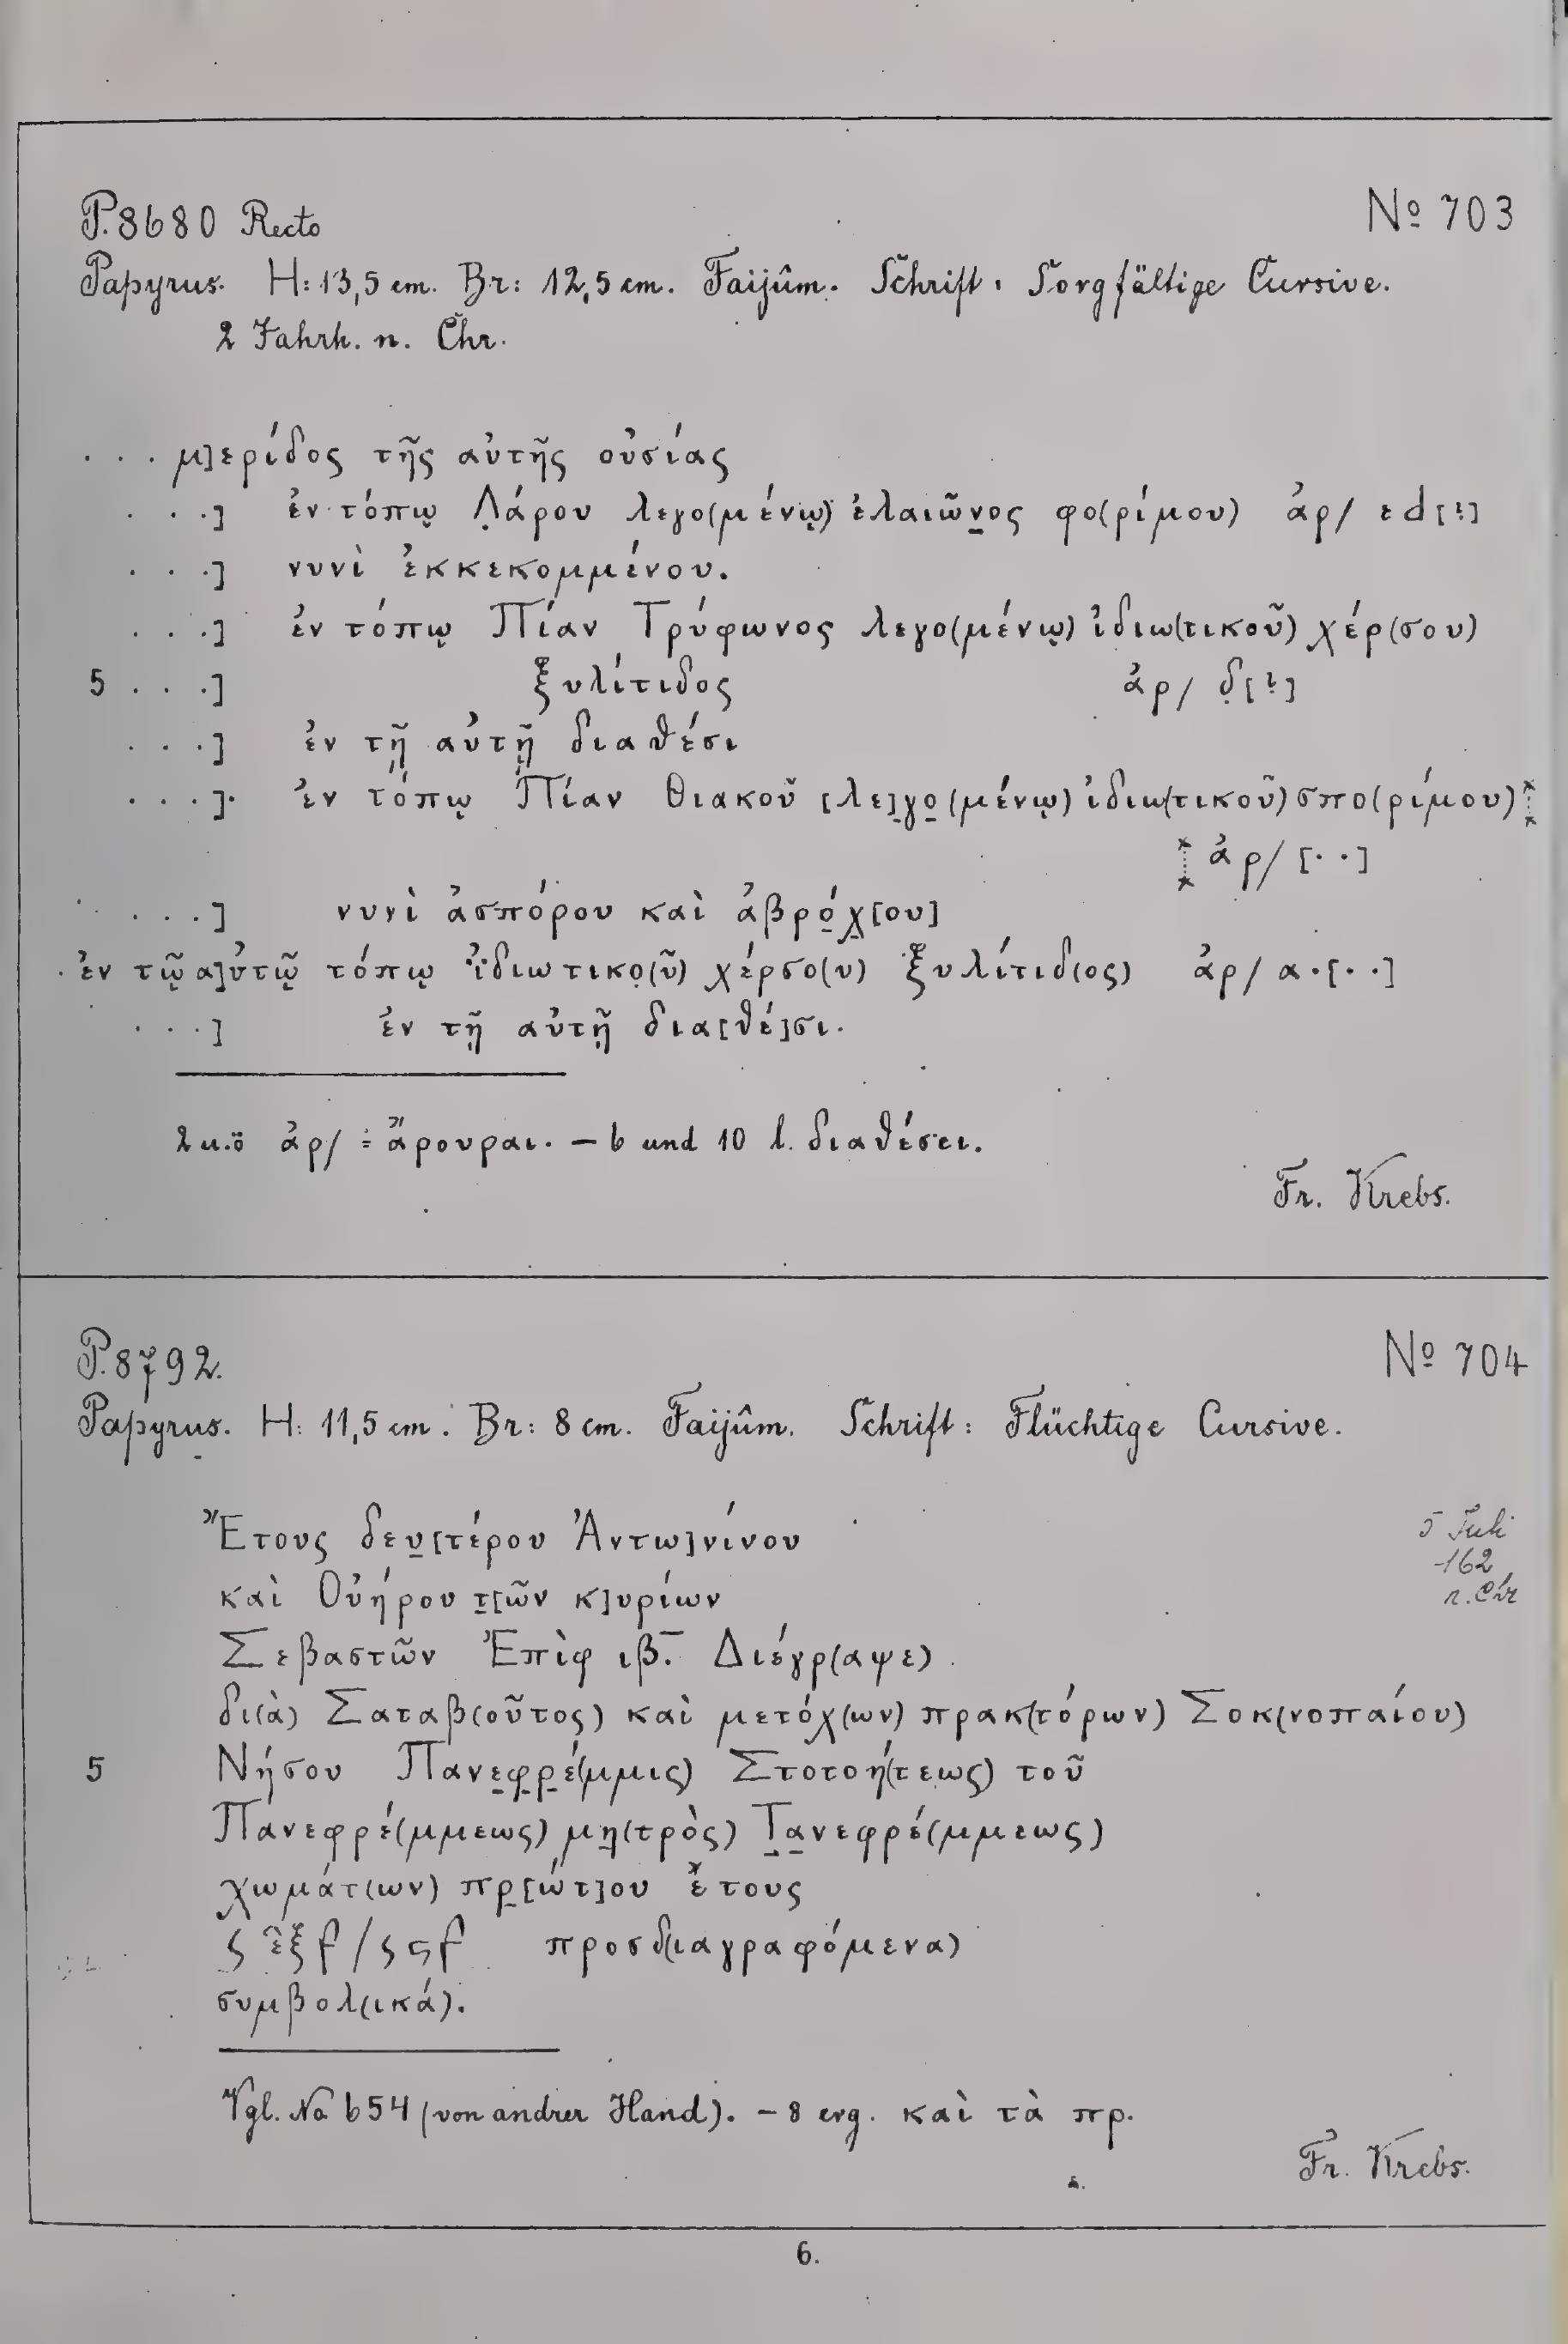 P. 8680 Recto
No 703
Papyrus. H: 13,5 cm. Br: 12,5 cm. Faijûm. Schrift: Sorgfältige Cursive.
2 Jahrh. n. Chr.
. . . μ]ερίδος τῆς αὐτῆς οὐσίας
. . .] ἐν τόπῳ Λ̣άρου λεγο(μένῳ) ἐλαιῶν̣ος φο(ρίμου) ἀρ/ εd[!]
. . .] νυνὶ ἐκκεκομμένου.
. . .] ἐν τόπῳ Πίαν Τρύφωνος λεγο(μένῳ) ἰδιω(τικοῦ) χέρ(σου)
5 . . .] ξυλίτιδος ἀρ/ δ̣[!]
. . .] ἐν τῇ αὐτῇ διαθέσι
. . .]· ἐν τόπῳ Πίαν Θιακοῦ [λε]γ̣ο̣(μένῳ) ἰδιω(τικοῦ) σπο(ρίμου)
ἀρ/ [· ·]
. . .] νυνὶ ἀσπόρου καὶ ἀβρό̣χ̣[ου]
ἐν τῷ α]ὐτῷ τόπῳ ἰ̈διωτικο̣(ῦ) χέρσο(υ) ξυλίτιδ(ος) ἀρ/ α·[· ·]
. . .] ἐν τῇ αὐτῇ δια[θέ]σι.
2 u. ö ἀρ/ = ἄρουραι. — 6 und 10 l. διαθέσει.
Fr. Krebs.
P. 8792.
No 704
Papyrus. H: 11,5 cm. Br: 8 cm. Faijûm. Schrift: Flüchtige Cursive.
Ἔτους δευ̣[τέρου Ἀντω]νίνου
5 Juli
καὶ Οὐήρου τ̣[ῶν κ]υρίων
162
n. Chr
Σεβαστῶν Ἐπὶφ ιβ‾. Διέγρ(αψε)
δι(ὰ) Σαταβ(οῦτος) καὶ μετόχ(ων) πρακ(τόρων) Σοκ(νοπαίου)
5 Νήσου Πανε̣φ̣ρ̣έ(μμις) Στοτοή(τεως) τοῦ
Πανεφρέ(μμεως) μη̣(τρὸς) Τ̣α̣νεφρέ(μμεως)
χωμάτ(ων) πρ̣[ώτ]ου ἔτους
ς ἓξ f / ς ϛ f προσδ(ιαγραφόμενα)
συμβολ(ικά).
Vgl. No 654 (von andrer Hand). — 8 erg. καὶ τὰ πρ.
Fr. Krebs.
6.